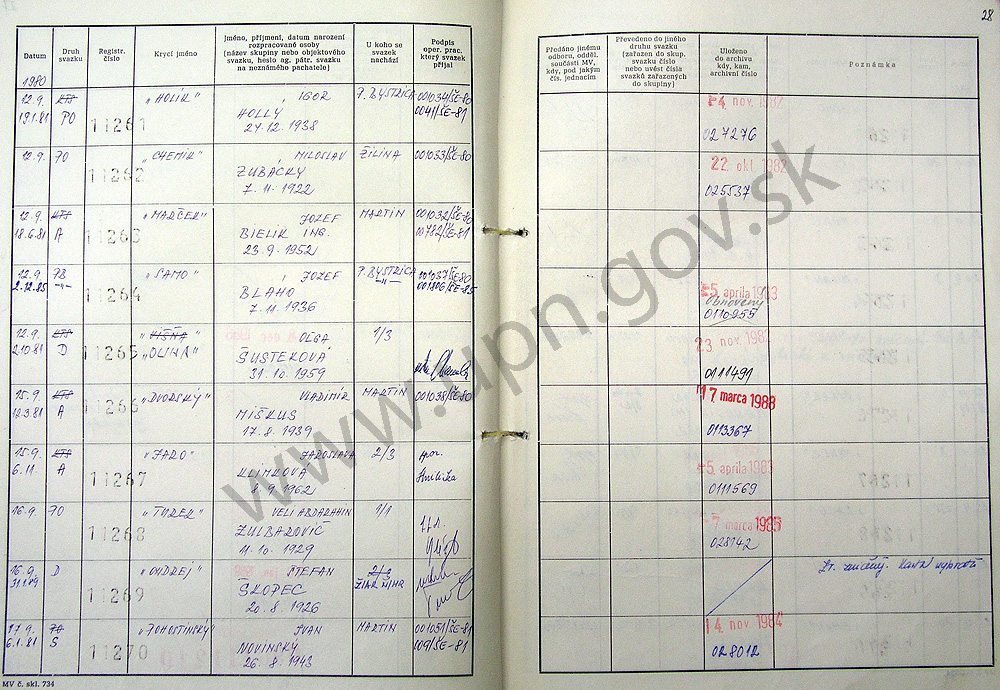 28
Datum
Druh svazku
Registr. číslo
Krycí jméno
jméno, příjmení, datum narození
rozpracované osoby
(název skupiny nebo objektového
svazku, heslo ag. pátr. svazku
na neznámého pachatele)
U koho se
svazek
nachází
Podpis
oper. prac.
který svazek
přijal
Předáno jinému
odboru, odděl.
součásti MV,
kdy, pod jakým
čís. jednacím
Převedeno do jiného
druhu svazku
(zařazen do skup.
svazku číslo
nebo uvést čísla
svazků zařazených
do skupiny)
Uloženo
do archivu
kdy, kam,
archivní číslo
Poznámka
1980
12.9. KTS 11261 "HOLIK" , IGOR P. BYSTRICA 001034/ŠE-80
19.1.81 PO HOLLÝ 0041/ŠE-81
24.12.1938
4. nov. 1982
027276
12.9. PO 11262 "CHEMIK" , MILOSLAV ŽILINA 001033/ŠE-80
ZUBÁCKY
7.11.1922
22. okt. 1982
025537
12.9. KTS 11263 "MARČEK" JOZEF MARTIN 001032/ŠE-80
18.6.81 A BIELIK ING. 00782/ŠE-81
23.9.1952
12.9. 11264 "SAMO" , JOZEF P. BYSTRICA 001037/ŠE-80
2.12.85 -"- BLAHO -"- 001806/ŠE-85
7.11.1936
5. apríla 1983
Obnovený
0110955
12.9. KTS 11265 "VIŠŇA" OĽGA 1/3
2.10.81 D "OLINA" ŠUSTEKOVÁ
31.10.1959
23. nov. 1982
0111491
15.9. KTS 11266 "DVORSKÝ" VLADIMÍR MARTIN 001038/ŠE-80
A MIŠKUS
17.8.1939
17 marca 1988
0113367
15.9. KTS 11267 "JARO" JAROSLAVA 2/3
6.11. A KLIMKOVÁ
8.9.1962
5. apríla 1983
0111569
16.9. PO 11268 "TUREK" VELI ABDARAHIN 1/1
ZULBAROVIČ
11.10.1929
7 marca 1985
028142
16.9. D 11269 "ONDREJ" ŠTEFAN
ŠKOPEC
20.8.1926
17.9. PO 11270 "POHOSTINSKÝ" IVAN MARTIN 001051/ŠE-81
6.1.81 S NOVINSKÝ 009/ŠE-81
26.8.1943
14. nov. 1984
028012
MV č. skl. 734
www.upn.gov.sk